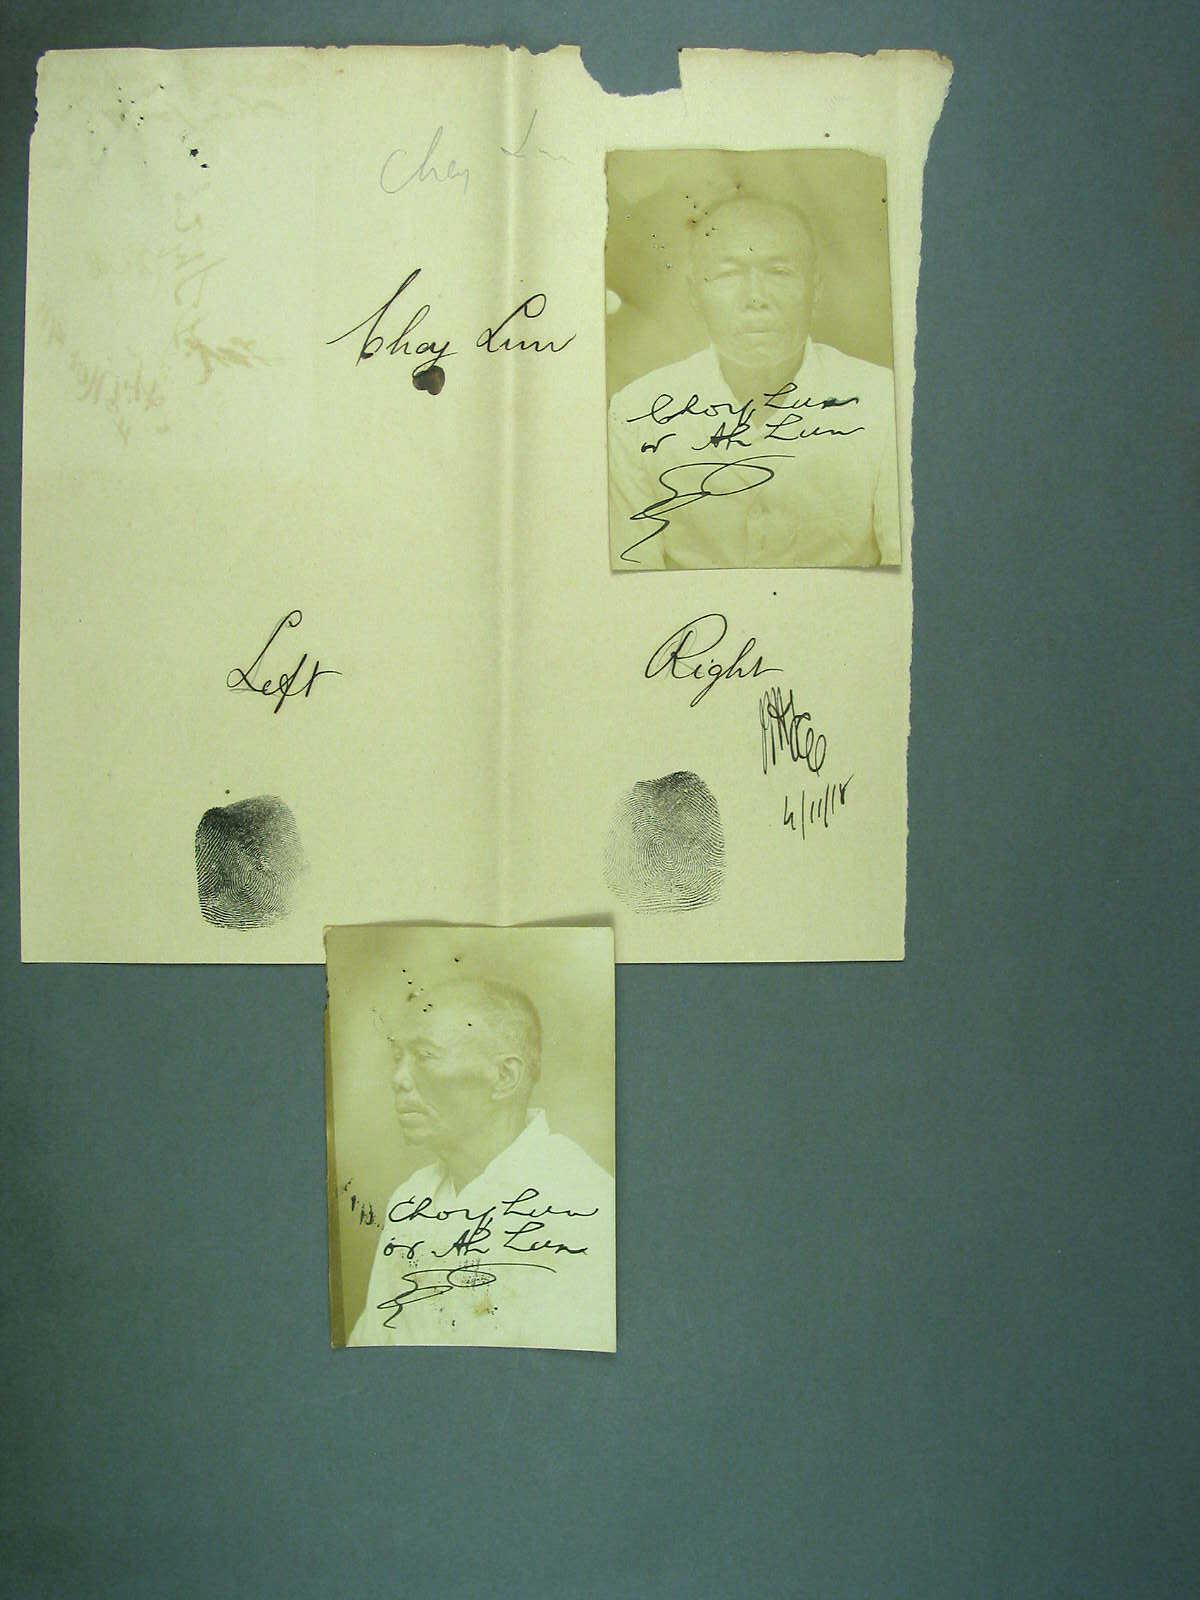 Choy Lun
Choy Lun
Choy Lun
or Ah Lun
Left
Right
4/11/18
Choy Lun
or Ah Lun